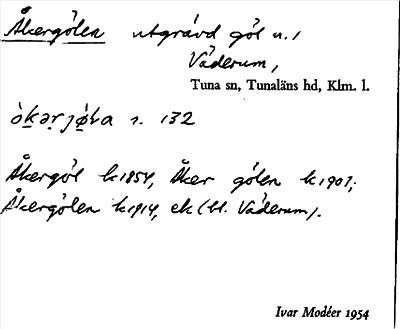 Åkergölen utgrävd göl u. /
Väderum,
Tuna sn, Tunaläns hd, Klm. l.
s. 132
Åkergöl k 1854, Åker gölen k 1907;
Åkergölen k 1914, ek (bl. Väderum).
Ivar Modéer 1954